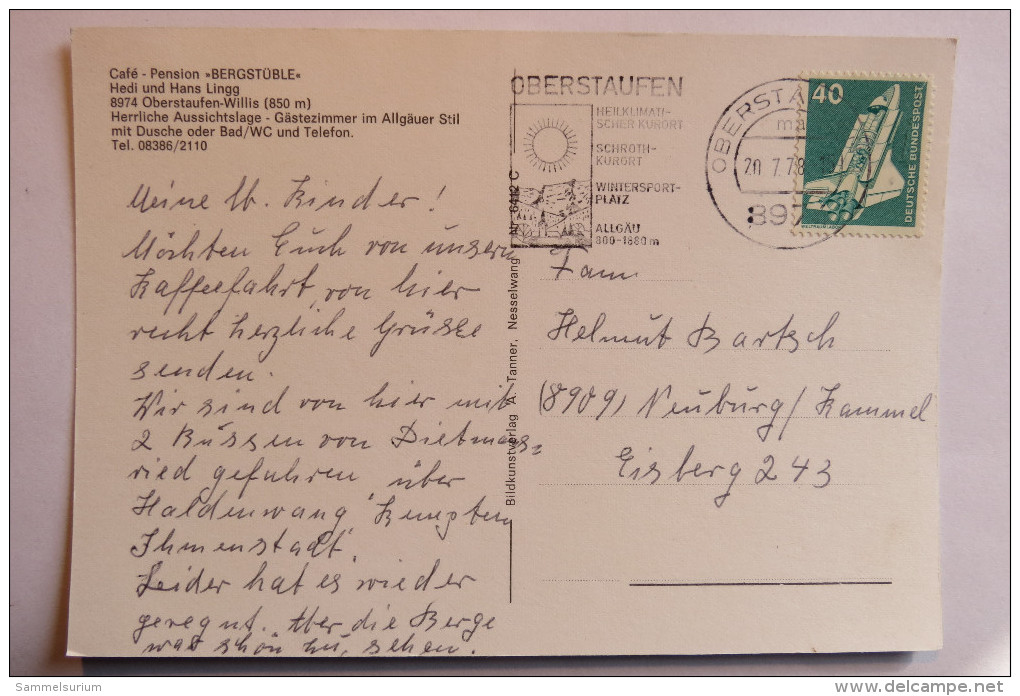 Café - Pension »BERGSTÜBLE«
Hedi und Hans Lingg
8974 Oberstaufen-Willis (850 m)
Herrliche Aussichtslage - Gästezimmer im Allgäuer Stil
mit Dusche oder Bad/WC und Telefon.
Tel. 08386/2110
Meine lb. Kinder!
Möchten Euch von unsern
Kaffeefahrt, von hier
recht herzliche Grüsse
senden.
Wir sind von hier mit
2 Bussen von Dietmans=
ried gefahren über
Haldenwang, Kempten
Ihmenstadt,
Leider hat es wieder
geregnt. Aber die Berge
war schön zu, sehen.
Bildkunstverlag A. Tanner, Nesselwang Nr. 6412 C
OBERSTAUFEN
HEILKLIMATI-
SCHER KURORT
SCHROTH-
KURORT
WINTERSPORT-
PLATZ
ALLGÄU
800-1880 m
OBERSTA
20.7.78
897
40
DEUTSCHE BUNDESPOST
WELTRAUMLABOR
Fam
Helmut Bartsch
(8909) Neuburg/Kammel
Eisberg 243
Sammelsurium
www.delcampe.net